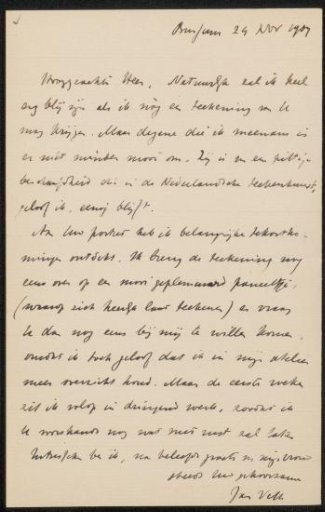 Bussum 24 Nov 1909
Hooggeachte Heer, Natuurlijk zal ik heel
erg blij zijn als ik nòg een teekening van U
mag krijgen. Maar degene die ik meenam is
er niet minder mooi om. Zij is en een
die in de Nederlandsche teekenkunst,
geloof ik, eenig blijft.
Aan Uw portret heb ik belangrijke tekortko-
mingen ontdekt. Ik breng de teekening nog
eens over op een mooi geplamuurd paneeltje
(waarop zich heerlijk laat teekenen) en vraag
U dan nog eens bij mij te willen komen,
omdat ik toch geloof dat ik in mijn atelier
meer overzicht houd. Maar de eerste weken
zit ik volop in dringend werk, zoodat ik
U voorhands nog wat met rust zal laten
ben ik, na beleefde groeten van mijn vrouw
steeds Uw gehoorzame
Jan Veth